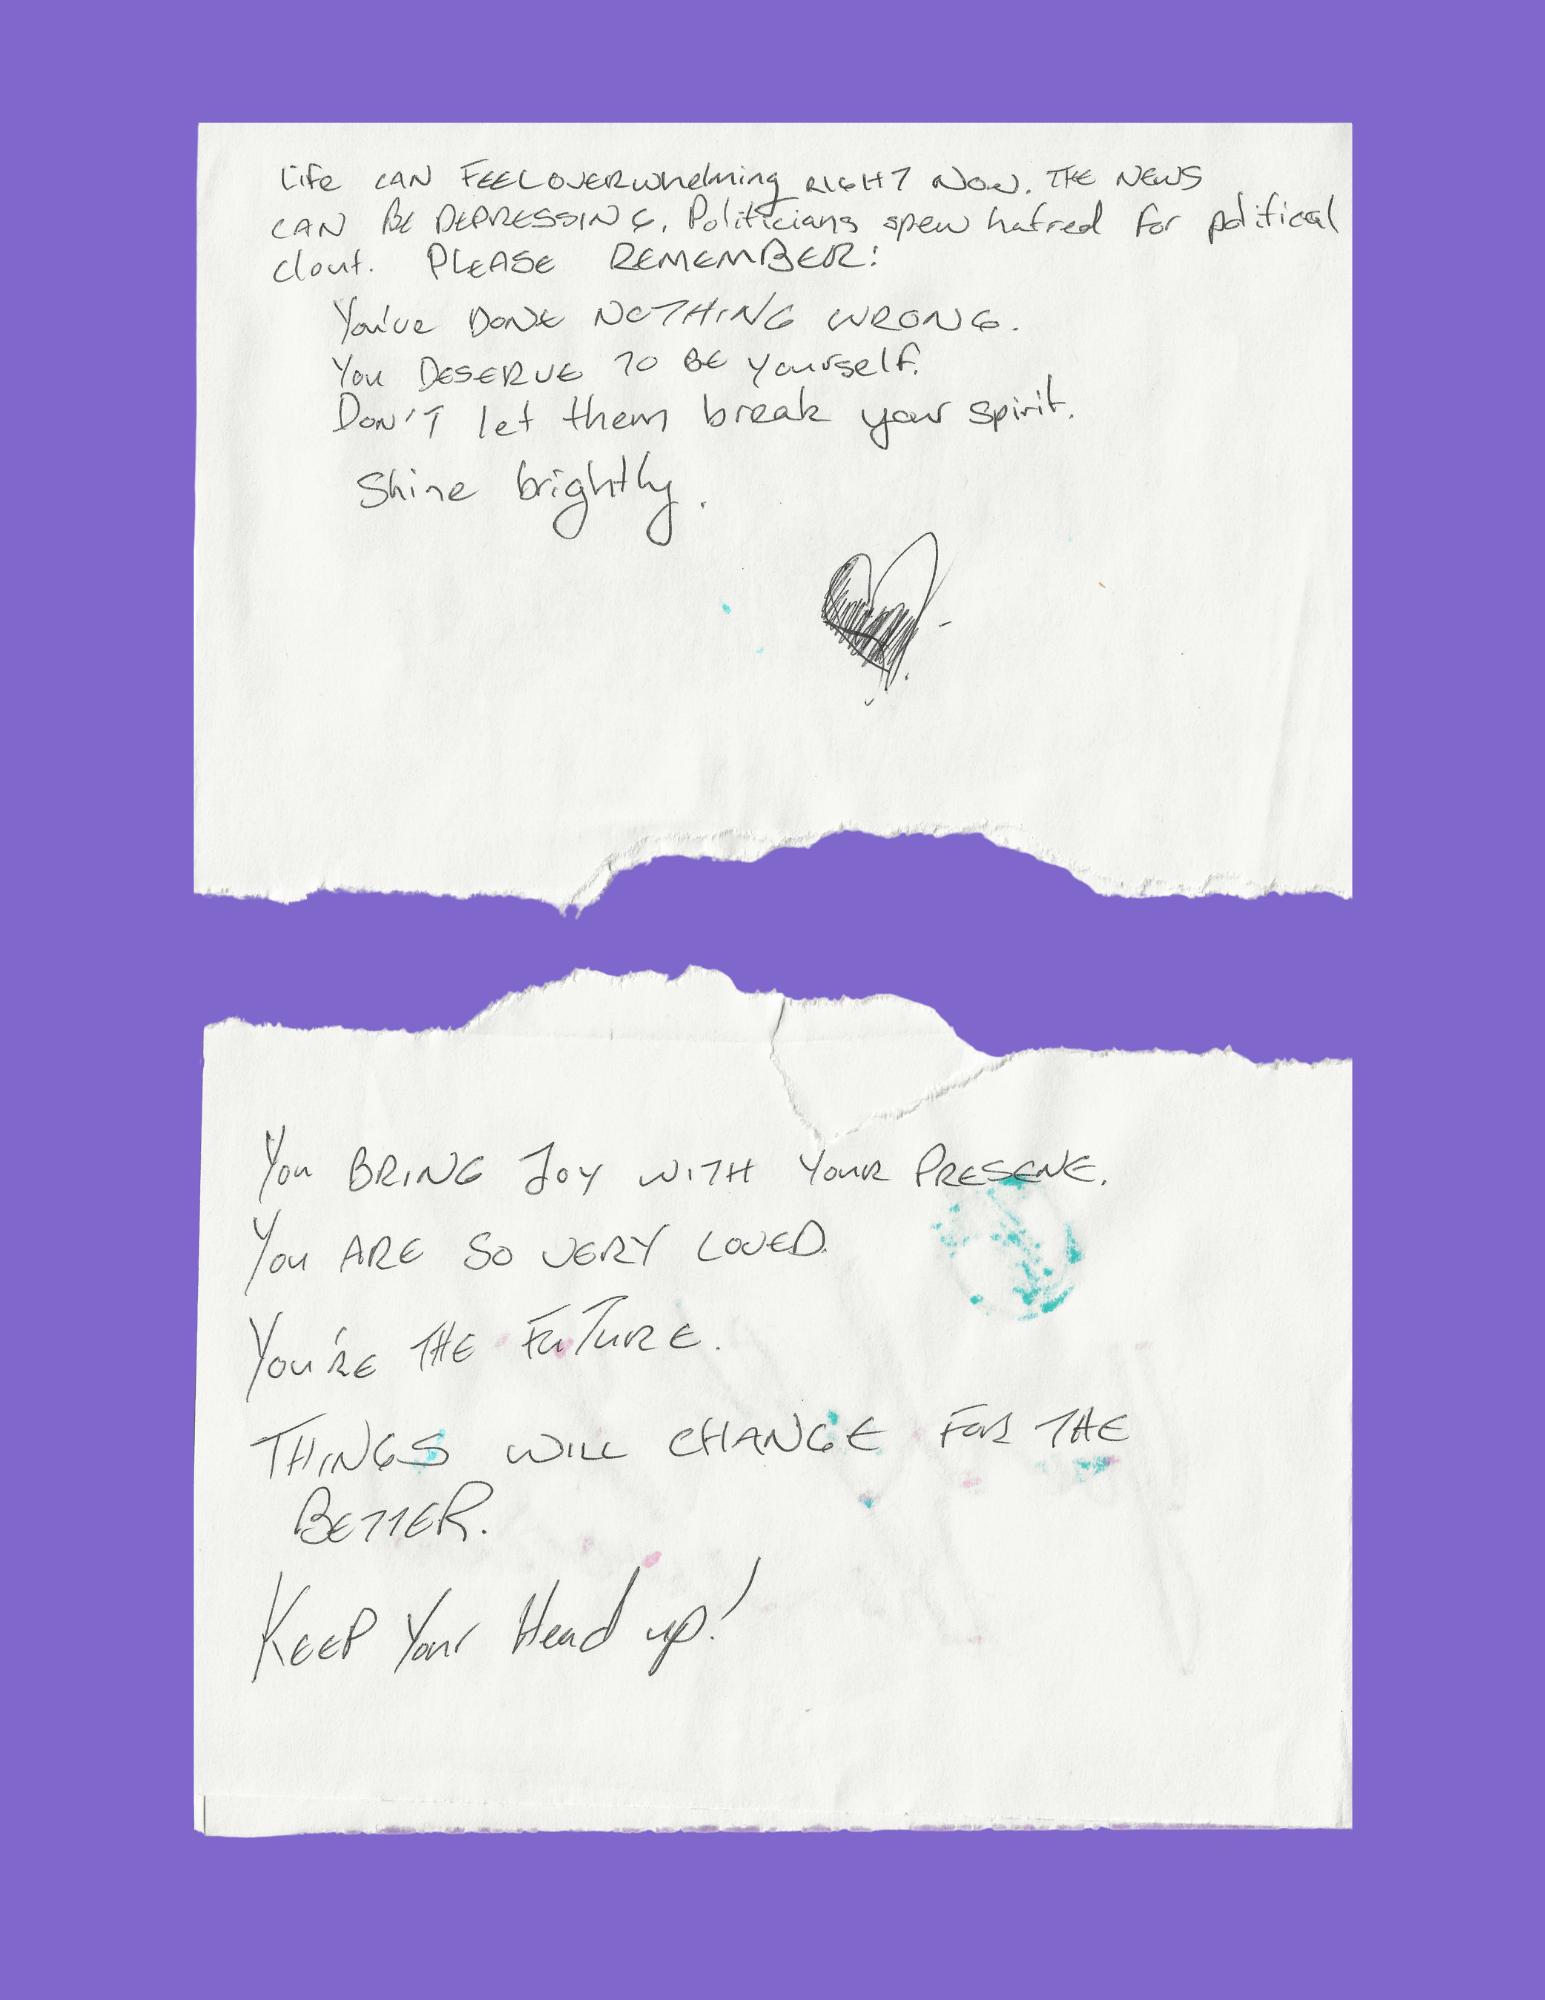 Life CAN FEEL OVERwhelming RIGHT NOW. THE NEWS
CAN BE DEPRESSING. Politicians spew hatred for political
clout. PLEASE REMEMBER:
You've DONE NOTHING WRONG.
You DESERVE TO BE yourself.
DON'T let them break your spirit.
Shine brightly.
You BRING JOY WITH YOUR PRESENE.
You ARE SO VERY LOVED.
You'RE THE FuTuRE.
THINGS WILL CHANGE FOR THE
BETTER.
KEEP Your Head up!